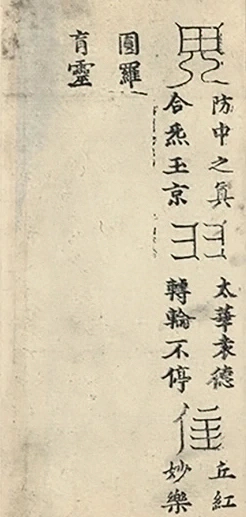 防中之真
合炁玉京
太華袁德
轉輪不停
丘紅
妙樂
圓羅
育靈